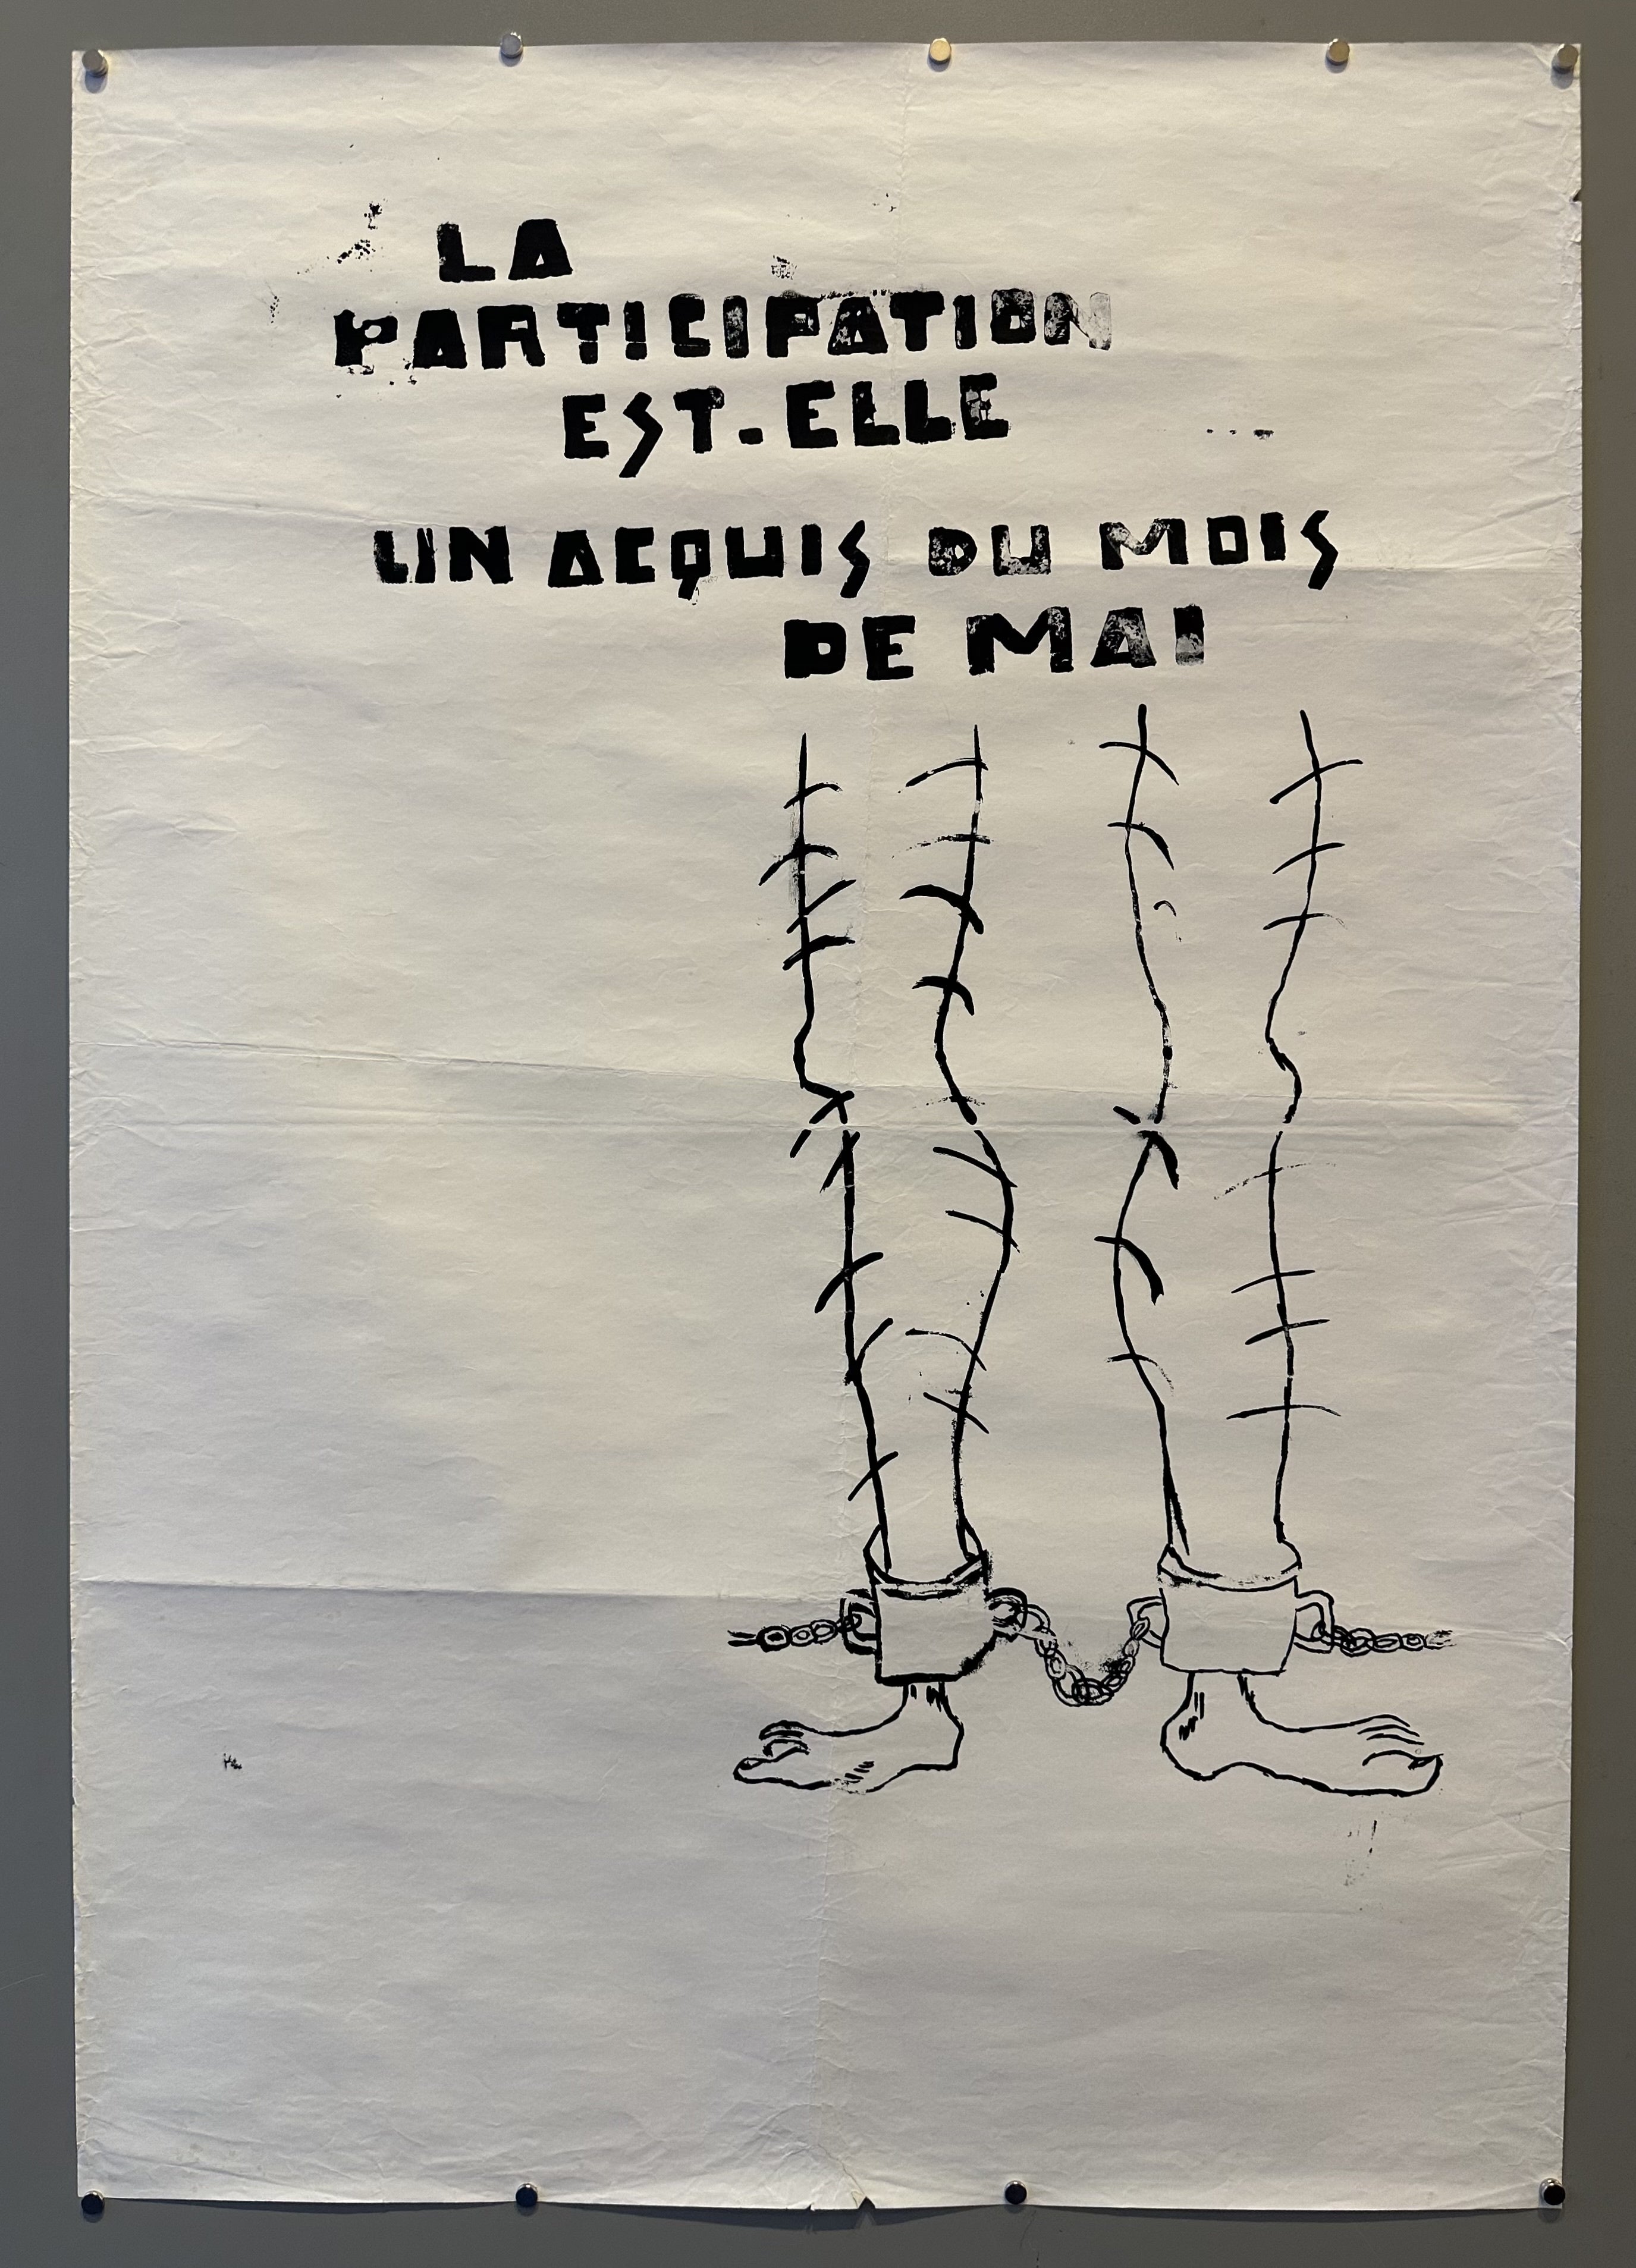 LA
PARTICIPATION
EST-ELLE
UN ACQUIS DU MOIS
DE MAI